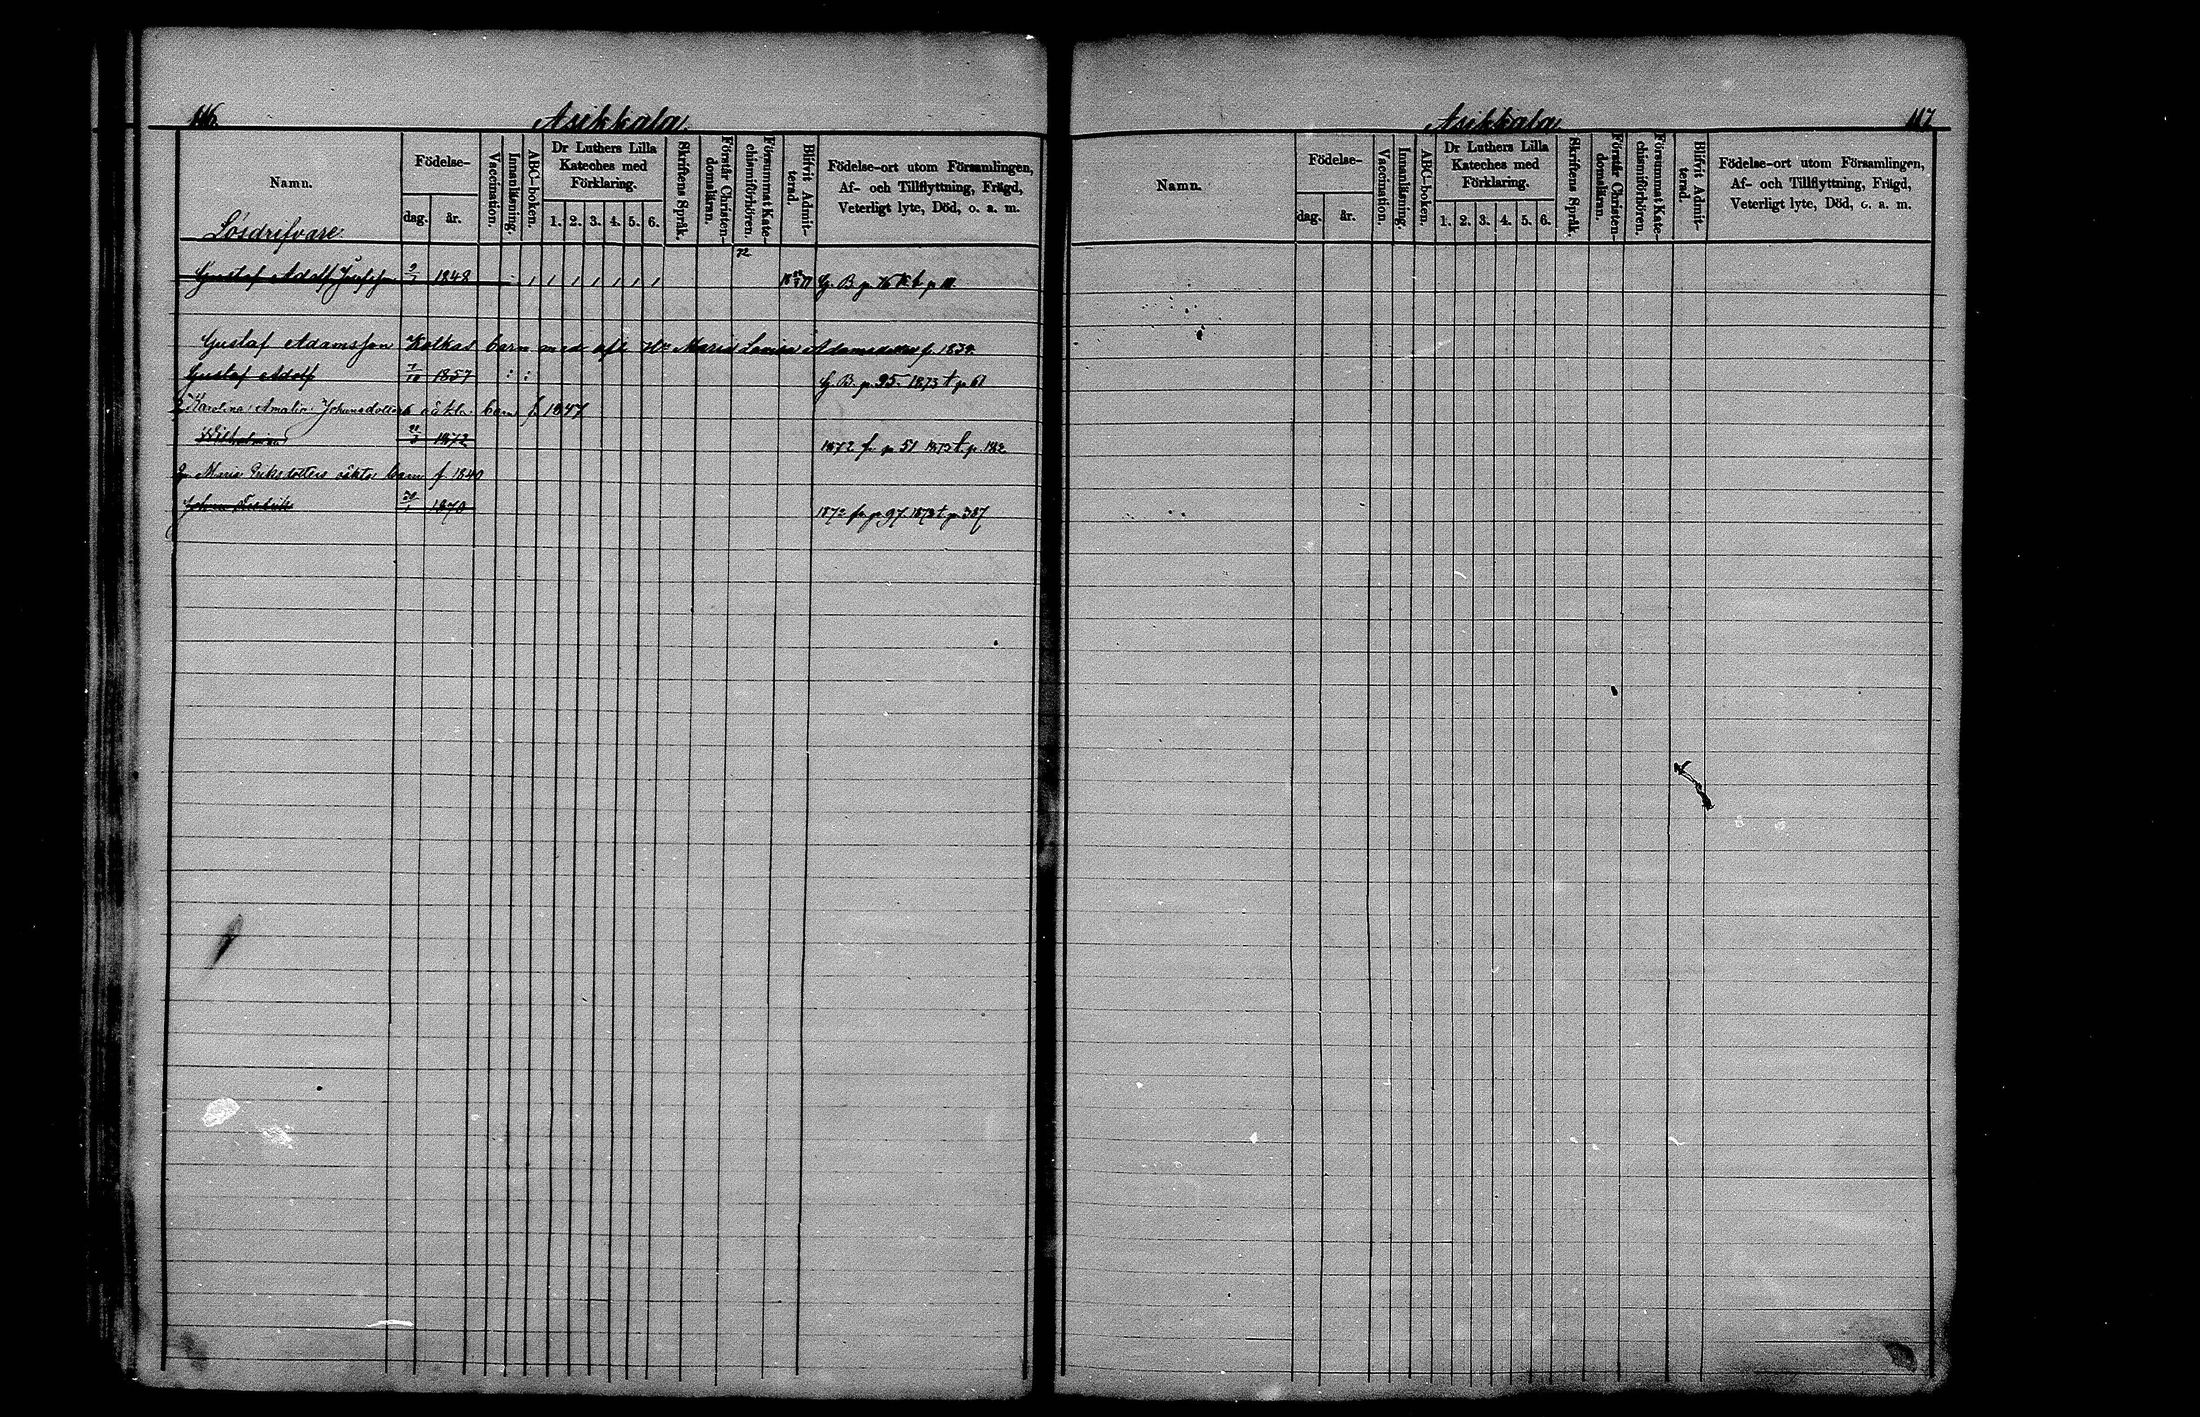 116. Asikkala.
Namn. Födelse- dag. år. Vaccination. Innanläsning. ABC-boken. Dr Luthers Lilla Kateches med Förklaring. 1. 2. 3. 4. 5. 6. Skriftens Språk. Förstår Christendomsläran. Försummat Katechismiförhören. Blifvit Admitterad. Födelse-ort utom Församlingen, Af- och Tillflyttning, Frägd, Veterligt lyte, Död, o. a. m.
Lösdrifvare.
72
Gustaf Adolf 1848 G. B. p. 76
Gustaf Adamsson Kolkas barn med afl. Hu Maria Lovisa Adamsdotter f. 1834.
Gustaf Adolf 7/10 1857 G. B. p. 95. 1873 t. p. 61
Karolina Amalia Johansdotters oäkta barn f. 1847
1872 1872 fr. p. 51 1873 t. p. 182
Maria Eriksdotters oäkta barn f. 1840
Johan Fredrik 1870 1872 fr. p. 97. 1873 t. p. 387
Asikkala. 117.
Namn. Födelse- dag. år. Vaccination. Innanläsning. ABC-boken. Dr Luthers Lilla Kateches med Förklaring. 1. 2. 3. 4. 5. 6. Skriftens Språk. Förstår Christendomsläran. Försummat Katechismiförhören. Blifvit Admitterad. Födelse-ort utom Församlingen, Af- och Tillflyttning, Frägd, Veterligt lyte, Död, o. a. m.